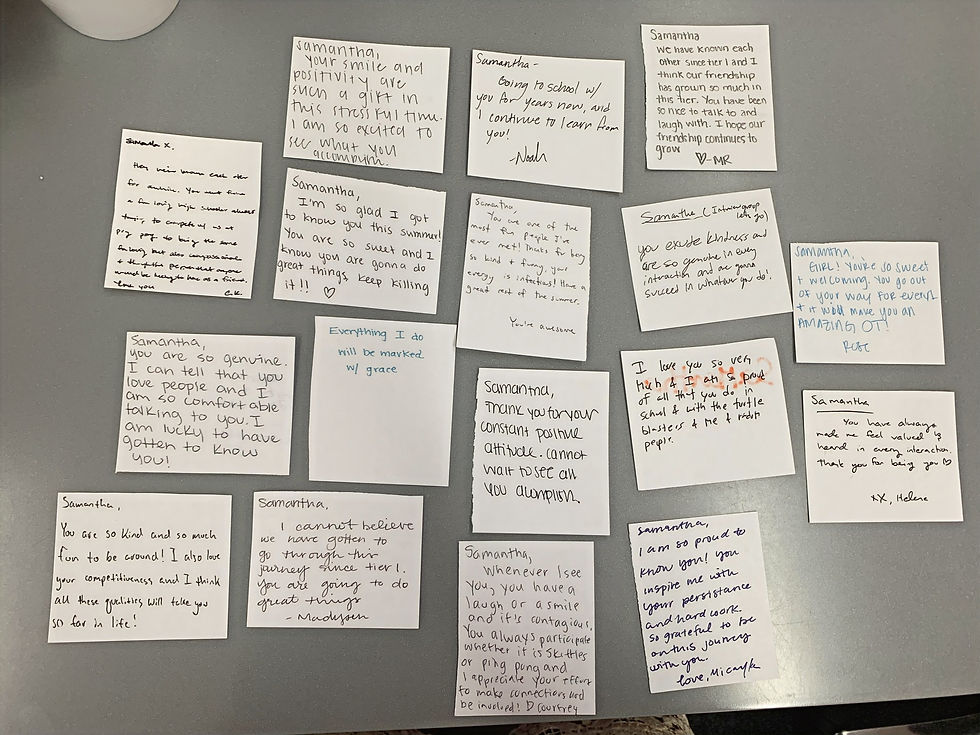 Samantha,
your smile and
positivity are
such a gift in
this stressful time.
I am so excited to
see what you
accomplish.
Samantha -
Going to school w/
you for years now, and
I continue to learn from
you!
-Noah
Samantha
We have known each
other since tier 1 and I
think our friendship
has grown so much in
this tier. You have been
so nice to talk to and
laugh with. I hope our
friendship continues to
grow
♡-MR
Samantha X.
for
trying to compete w/ us at
ping pong to being the same
but also compassionate
would be lucky to have as a friend.
Love you
C.K.
Samantha,
I'm so glad I got
to know you this summer!
You are so sweet and I
know you are gonna do
great things, keep killing
it!! ♡
Samantha,
You are one of the
most fun people I've
ever met! Thanks for being
so kind + funny, your
energy is infectious! Have a
great rest of the summer.
You're awesome
Samantha (Interview group
lets go)
you exude kindness and
are so genuine in every
interaction and are gonna
succeed in whatever you do!
Samantha,
GIRL! You're so sweet
+ welcoming. You go out
of your way for every1
+ it will make you an
AMAZING OT!
Rose
Samantha,
you are so genuine.
I can tell that you
love people and I
am so comfortable
talking to you. I
am lucky to have
gotten to know
you!
Everything I do
will be marked
w/ grace
Samantha,
Thank you for your
constant positive
attitude. cannot
wait to see all
you acomplish.
I love you so very
much & I am so proud
of all that you do in
school & with the turtle
blasters & me &
people.
Samantha
You have always
made me feel valued &
heard in every interaction.
Thank you for being you ♡
xx, Helena
Samantha,
You are so kind and so much
fun to be around! I also love
your competitiveness and I think
all these qualities will take you
so far in life!
Samantha,
I cannot believe
we have gotten to
go through this
journey since tier 1.
you are going to do
great things
- Madysen
Samantha,
Whenever I see
you, you have a
laugh or a smile
and it's contagious.
You always participate
whether it is Skittles
or ping pong and
I appreciate your effort
to make connections and
be involved! ♡ Courtney
Samantha,
I am so proud to
know you! you
inspire me with
your persistance
and hard work.
so grateful to be
on this journey
with you.
love, Micayla